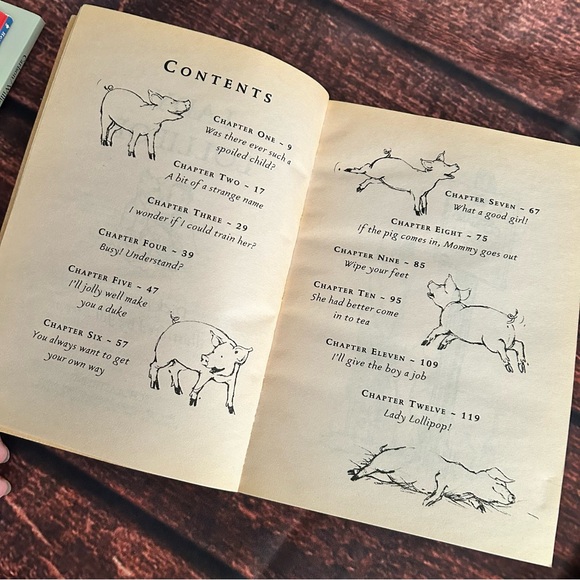 CONTENTS
CHAPTER ONE – 9
Was there ever such a
spoiled child?
CHAPTER TWO – 17
A bit of a strange name
CHAPTER THREE – 29
I wonder if I could train her?
CHAPTER FOUR – 39
Busy! Understand?
CHAPTER FIVE – 47
I'll jolly well make
you a duke
CHAPTER SIX – 57
You always want to get
your own way
CHAPTER SEVEN – 67
What a good girl!
CHAPTER EIGHT – 75
If the pig comes in, Mommy goes out
CHAPTER NINE – 85
Wipe your feet
CHAPTER TEN – 95
She had better come
in to tea
CHAPTER ELEVEN – 109
I'll give the boy a job
CHAPTER TWELVE – 119
Lady Lollipop!